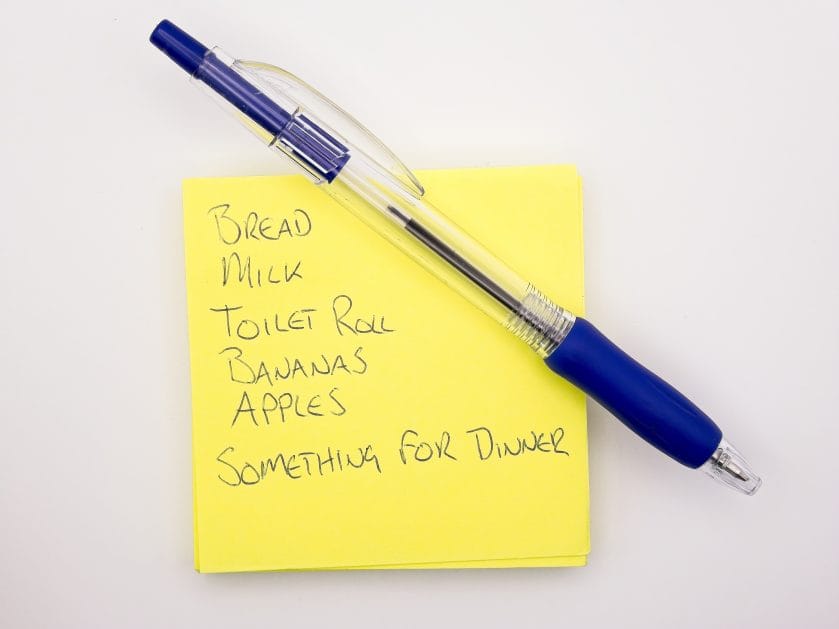 BREAD
MILK
TOILET ROLL
BANANAS
APPLES
SOMETHING FOR DINNER